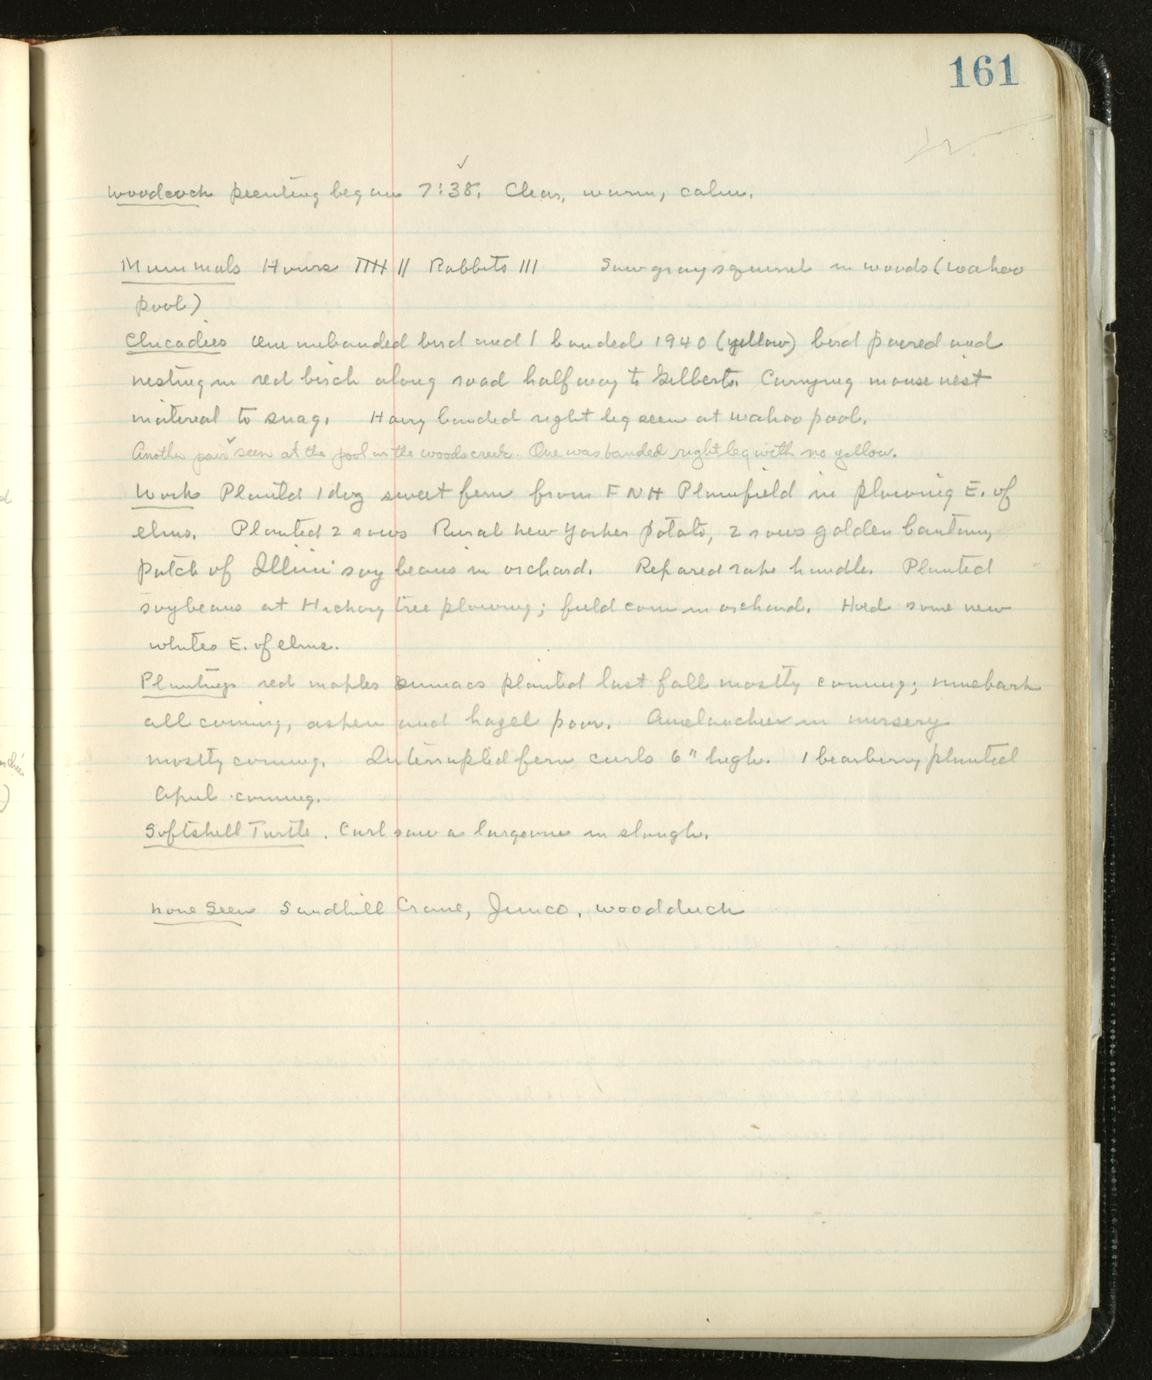 161
Woodcock peenting began 7:38. Clear, warm, calm.
Mammals Hours TTH II Rabbits III Saw gray squirrel in woods (wahoo
pool)
Chicadies One unbanded bird and 1 banded 1940 (yellow) bird paired and
nesting in red birch along road halfway to Gilberts. Carrying mouse nest
material to snag. Hairy banded right leg seen at wahoo pool.
Another pair seen at the pool in the woods creek. One was banded right leg with no yellow.
Work Planted 1 doz sweet fern from FNH Plainfield in plowing E. of
elms. Planted 2 rows Rural New Yorker potato, 2 rows golden bantum,
patch of Illini soy beans in orchard. Repared rake handle. Planted
soybeans at Hickory tree plowing; field corn in orchard. Hoed some new
whites E. of elms.
Plantings red maples sumacs planted last fall mostly coming; ninebark
all coming, aspen and hazel poor. Amelanchier in nursery
mostly coming. Interrupted fern curls 6" high. 1 bearberry planted
April coming.
Softshell Turtle. Carl saw a large one in slough.
None Seen Sandhill Crane, Junco, woodduck